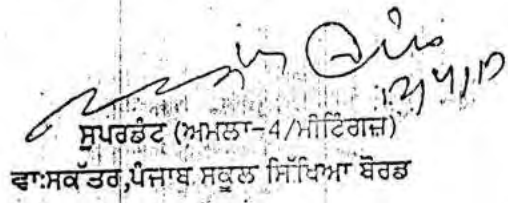 ਸੁਪਰਡੰਟ (ਅਮਲਾ-4/ਮੀਟਿੰਗਜ਼)
ਵਾ:ਸਕੱਤਰ,ਪੰਜਾਬ ਸਕੂਲ ਸਿੱਖਿਆ ਬੋਰਡ